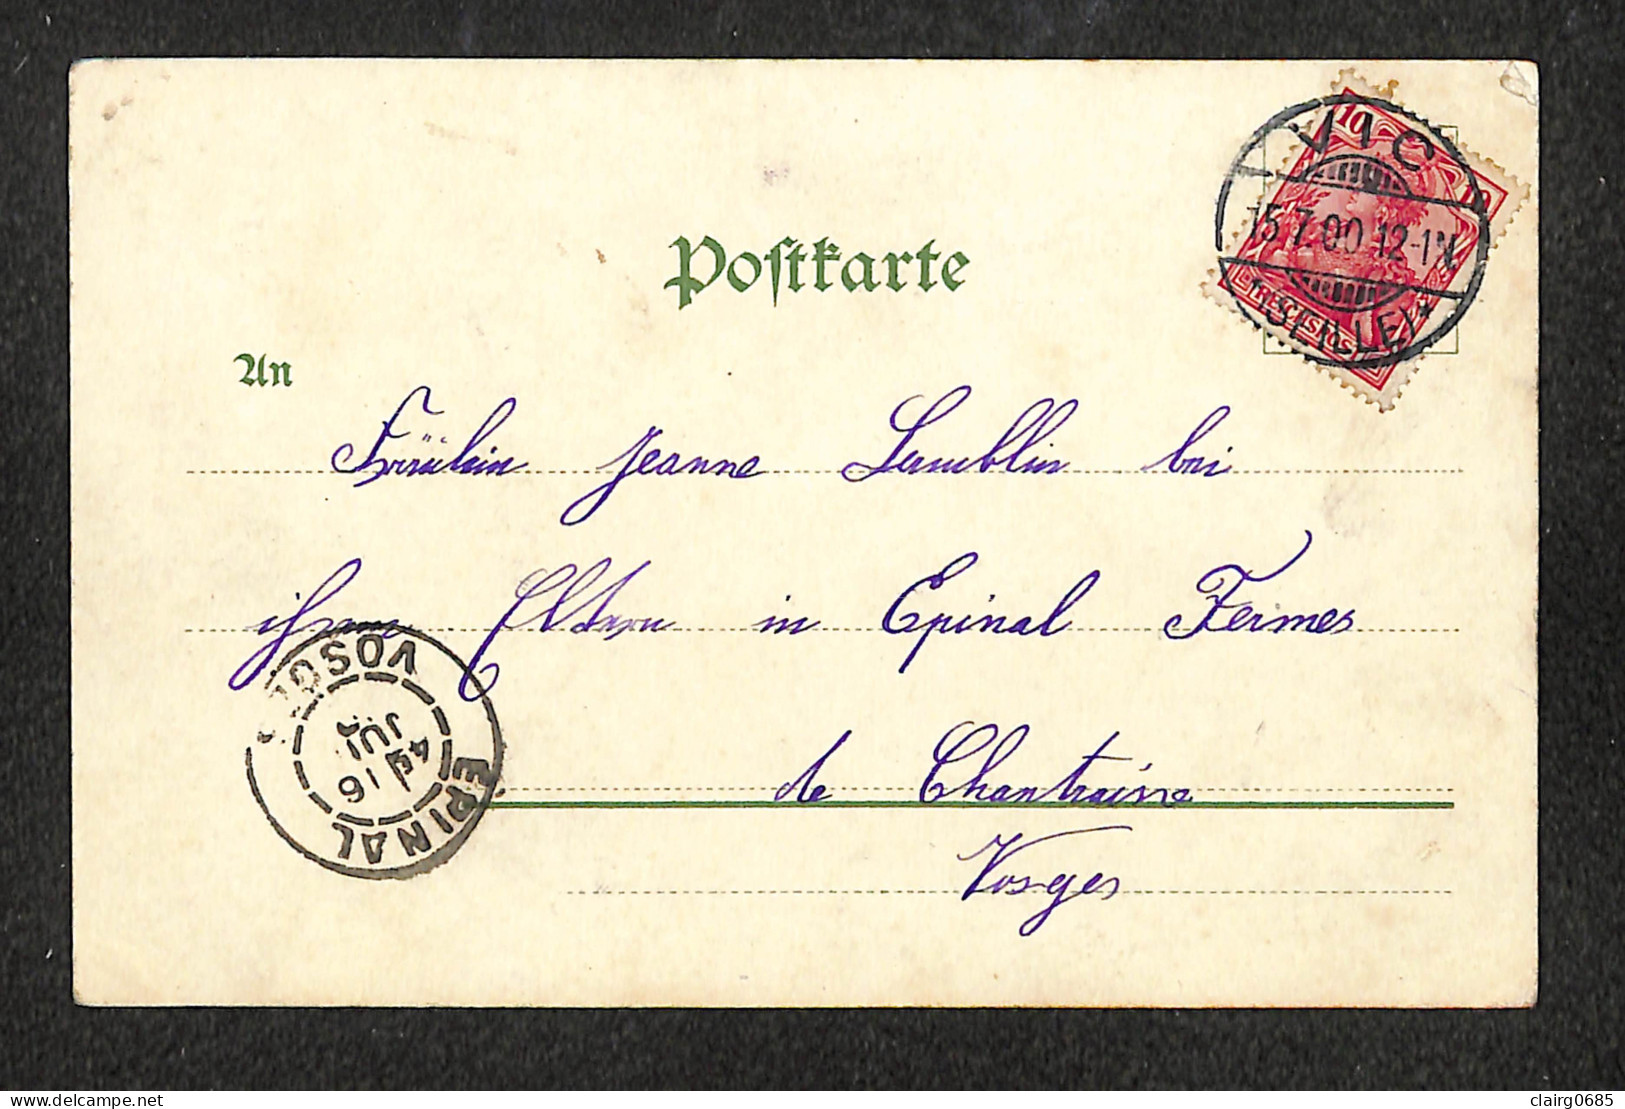 Postkarte
10
10
VIC
15.7.00.12-1N.
(SEILLE)*
REICHSPOST
An
Fräulein Jeanne Lamblin bei
ihren Eltern in Epinal Fermes
de Chantraine
Vosges
VOSGES
JUIL
16
ÉPINAL
clairg0685